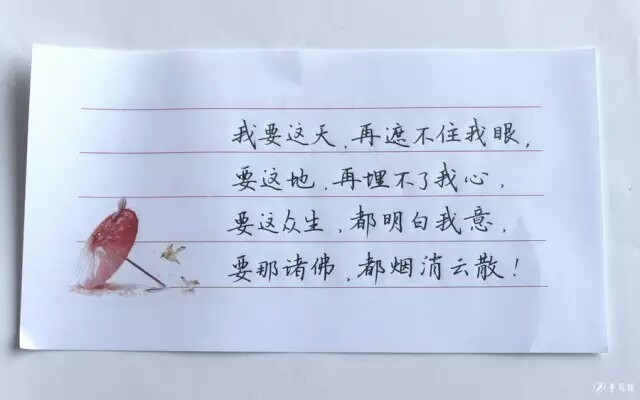 我要这天,再遮不住我眼,
要这地,再埋不了我心,
要这众生,都明白我意,
要那诸佛,都烟消云散!